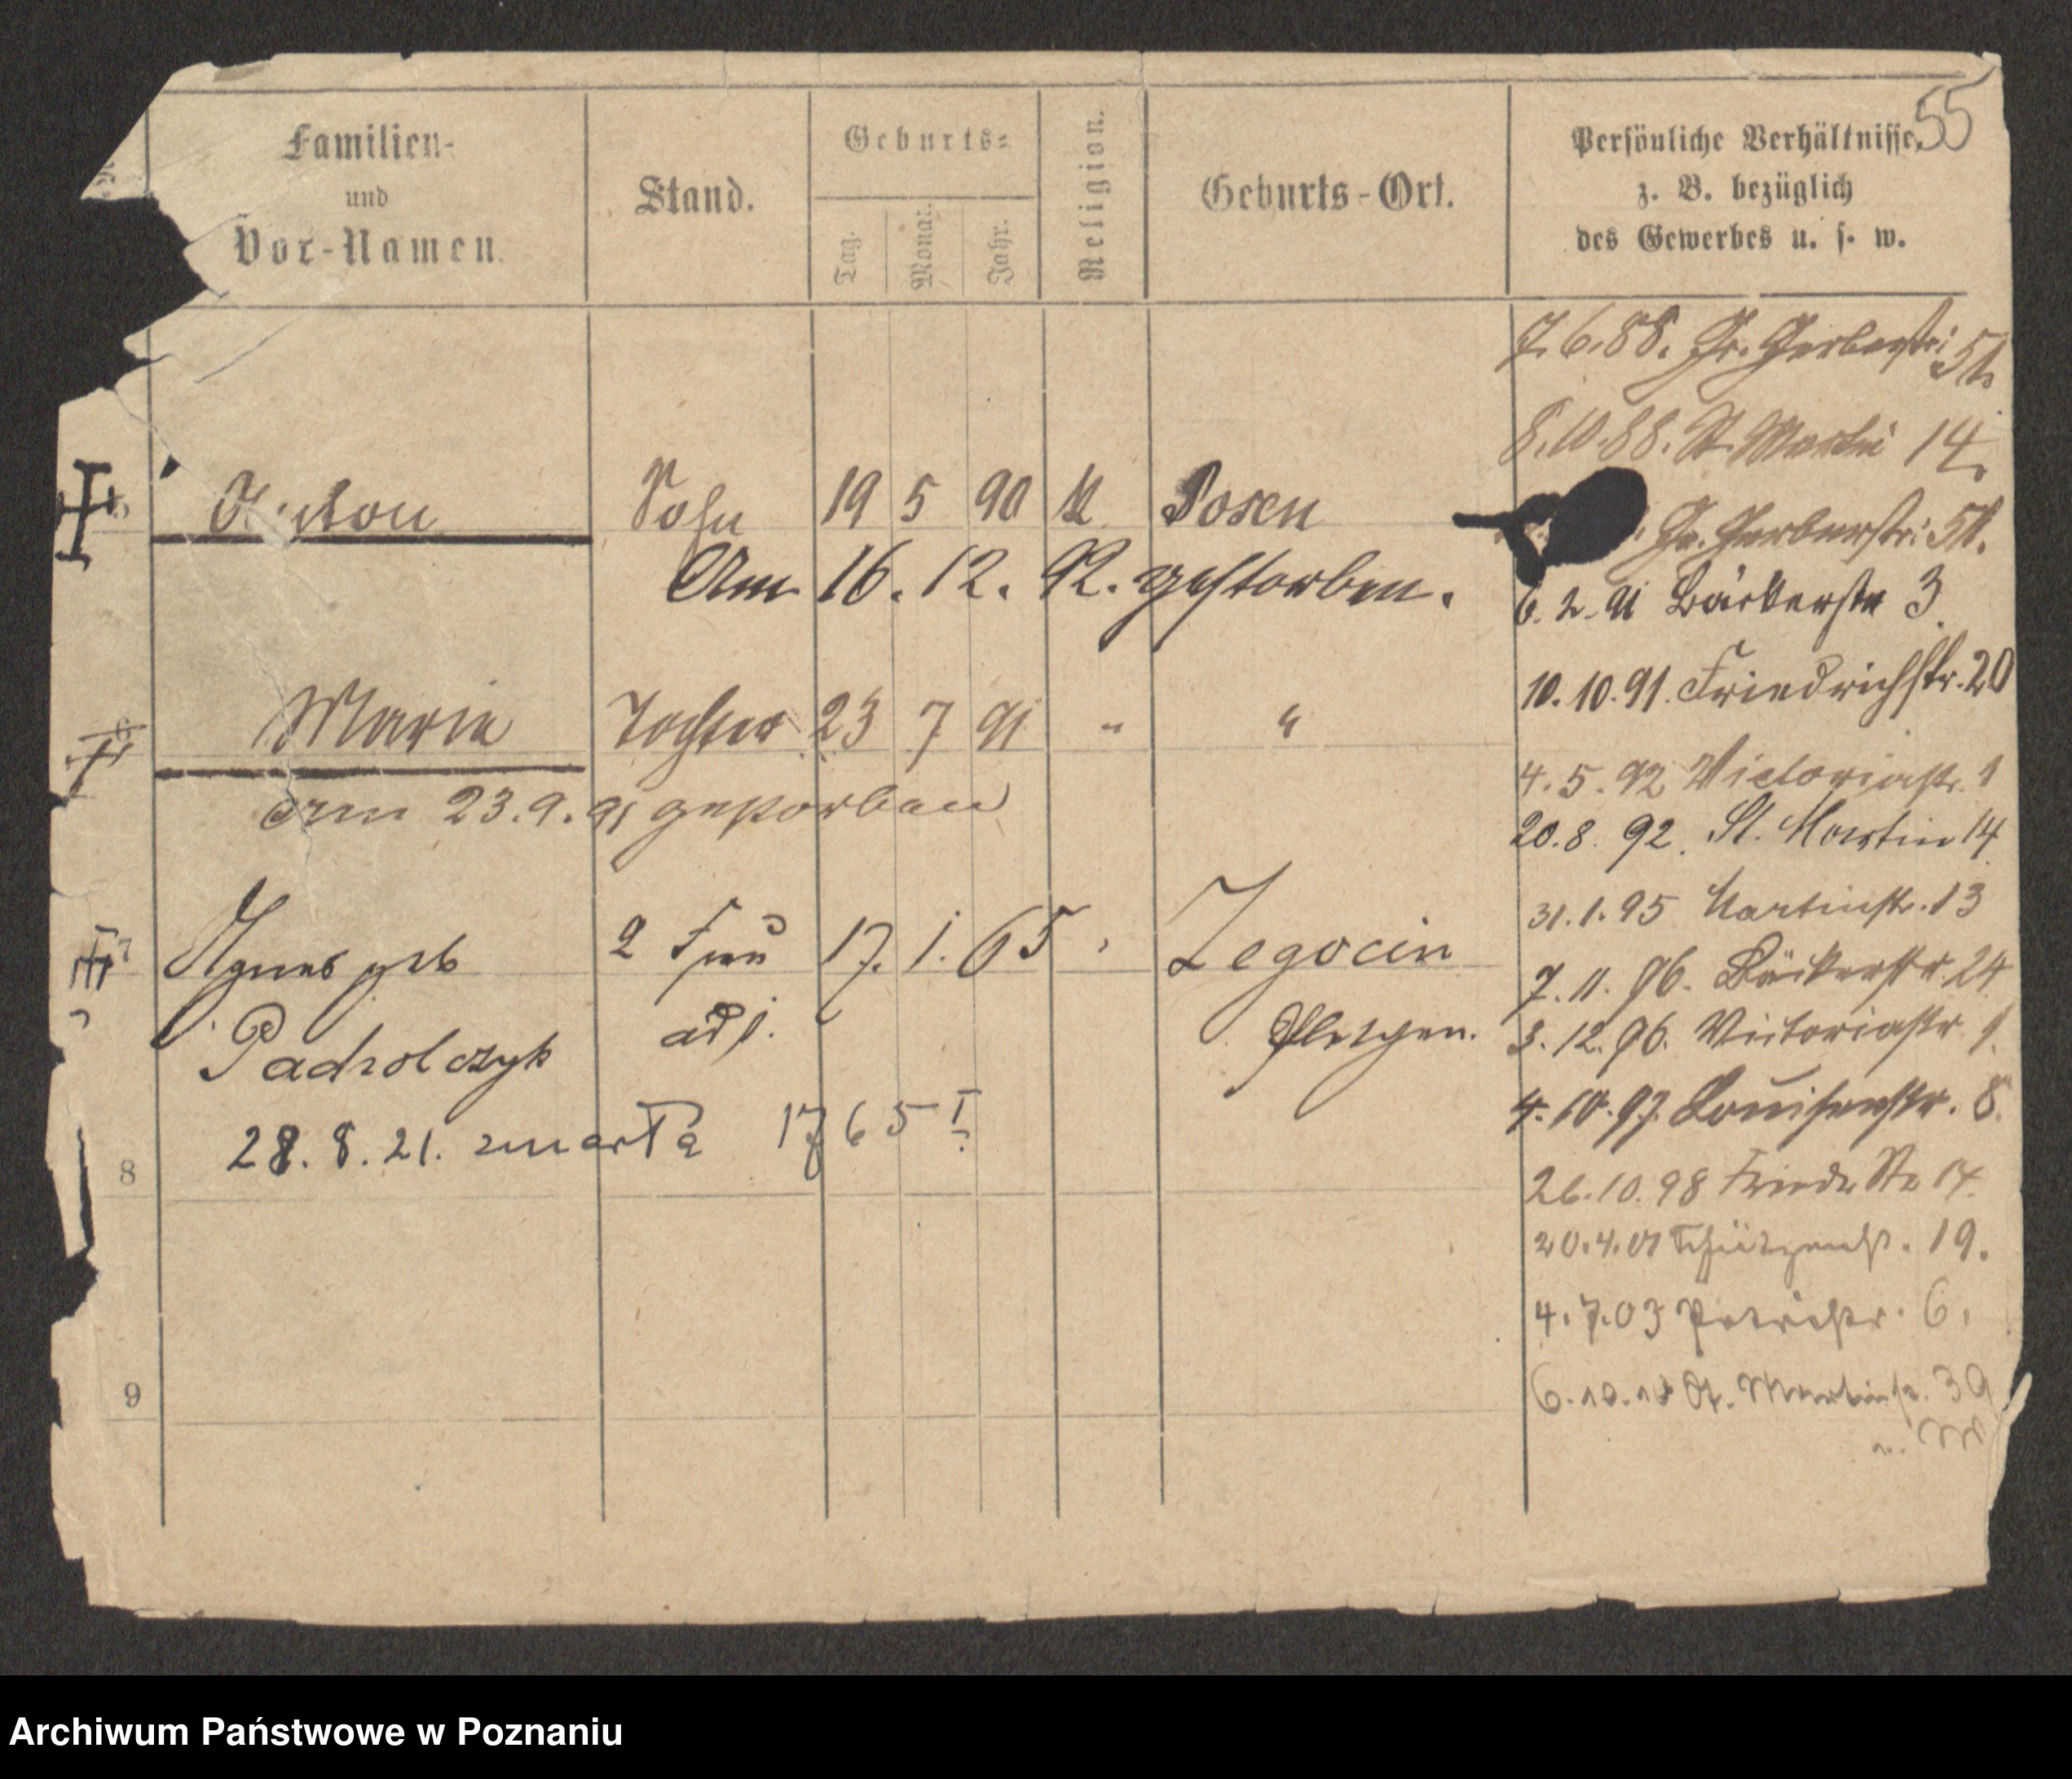 55
Familien-
und
Vor-Namen.
Stand.
Geburts=
Tag.
Monat.
Jahr.
Religion.
Geburts-Ort.
Persönliche Verhältnisse,
z. B. bezüglich
des Gewerbes u. s. w.
7.6.88. Gr. Gerberstr:
8.10.88. St. Martin 14.
Anton Sohn 19 5 90 k Posen
Gr. Gerberstr:
Am 16. 12. 92. gestorben.
6. 2. 91 Bäckerstr 3
10. 10. 91. Friedrichstr. 20
Marie Tochter 23 7 91 " "
am 23. 9. 91 gestorben
4. 5. 92 Victoriastr. 1
20. 8. 92. St. Martin 14
31. 1. 95 Martinstr. 13
7
Agnes geb 2 Frau 17. 1. 65 Zegocin
7. 11. 96. Bäckerstr. 24
Padrolczyk Pleschen.
3. 12. 96. Victoriastr. 1.
4. 10. 97. Louisenstr. 8.
8
28. 8. 21. zmarła
26. 10. 98 Friedr Str 14.
20. 4. 01 Schützenstr. 19.
4. 7. 03 Petristr. 6.
9
6. 10. 10 St. Martinstr. 39
Archiwum Państwowe w Poznaniu